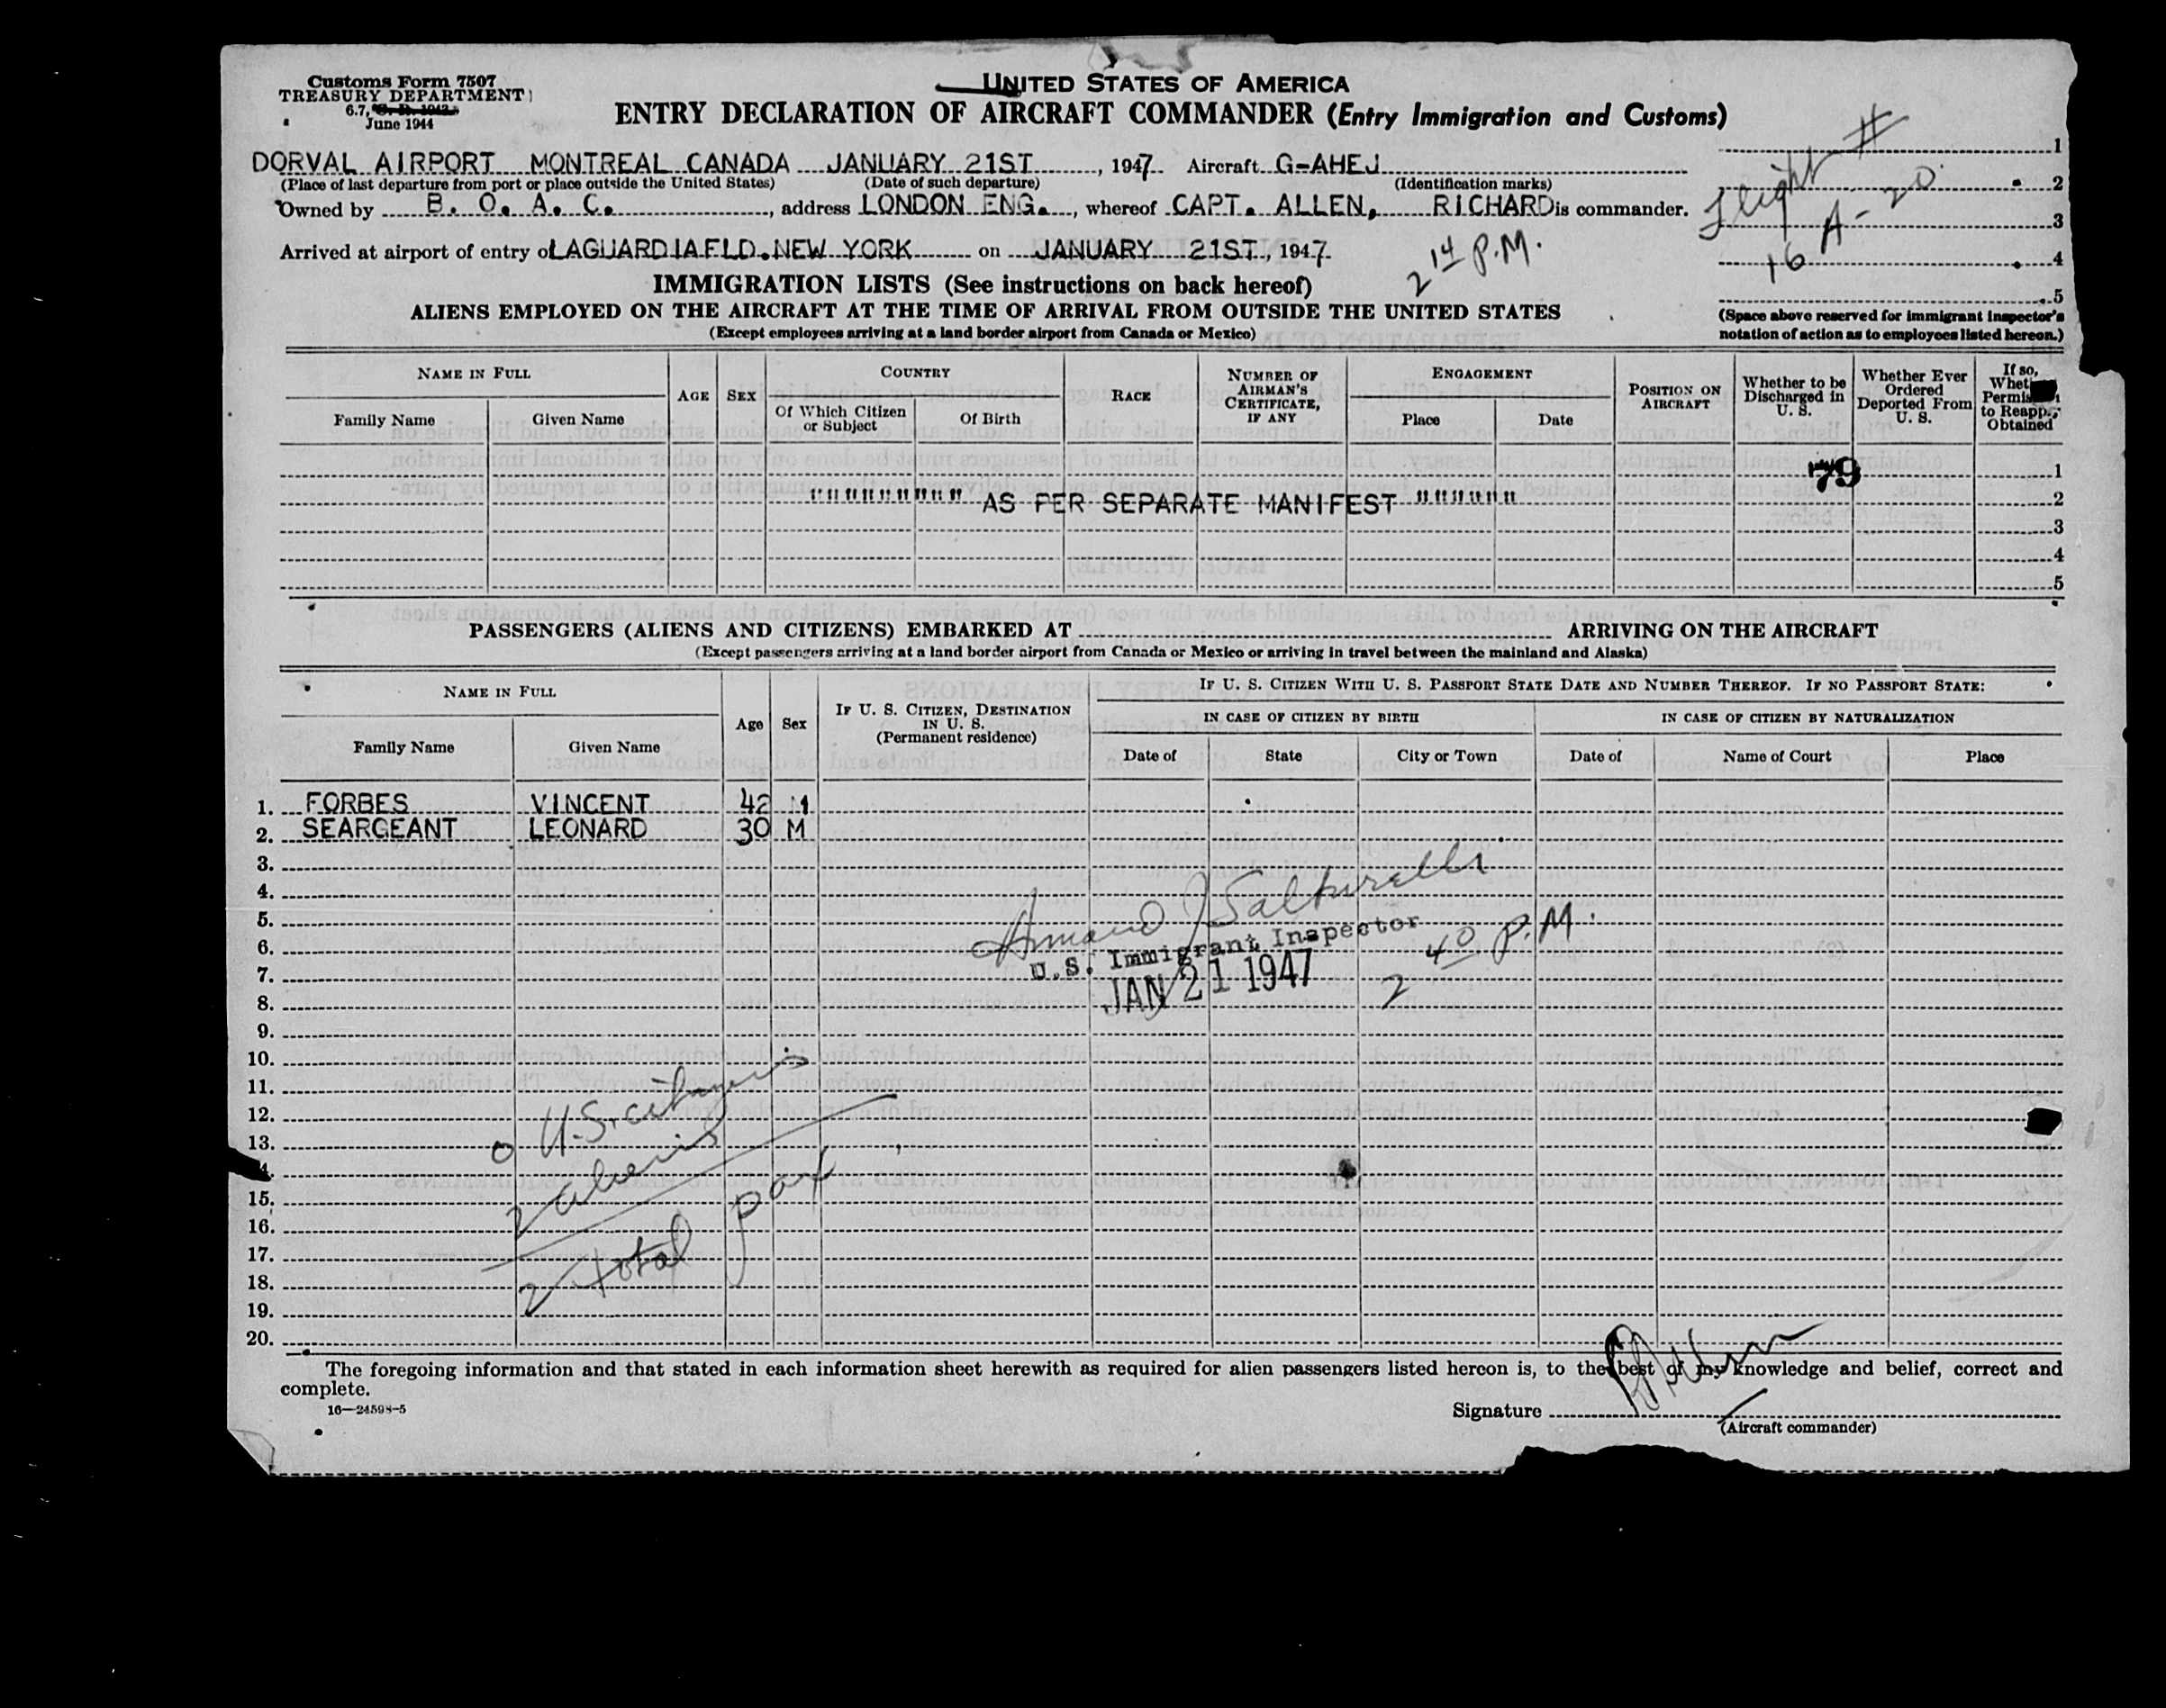 Customs Form 7507
TREASURY DEPARTMENT
6.7,
June 1944
UNITED STATES OF AMERICA
ENTRY DECLARATION OF AIRCRAFT COMMANDER (Entry Immigration and Customs)
DORVAL AIRPORT MONTREAL CANADA JANUARY 21ST, 1947. Aircraft G-AHEJ
(Place of last departure from port or place outside the United States) (Date of such departure) (Identification marks)
Owned by B. O. A. C., address LONDON ENG., whereof CAPT. ALLEN, RICHARD is commander.
Arrived at airport of entry of LAGUARDIA FLD. NEW YORK on JANUARY 21ST, 1947.
2 14 P.M.
Flight #
16 A-20
1
2
3
4
5
(Space above reserved for immigrant inspector's notation of action as to employees listed hereon.)
IMMIGRATION LISTS (See instructions on back hereof)
ALIENS EMPLOYED ON THE AIRCRAFT AT THE TIME OF ARRIVAL FROM OUTSIDE THE UNITED STATES
(Except employees arriving at a land border airport from Canada or Mexico)
NAME IN FULL
Family Name Given Name
AGE SEX
COUNTRY
Of Which Citizen or Subject Of Birth
RACE
NUMBER OF AIRMAN'S CERTIFICATE, IF ANY
ENGAGEMENT
Place Date
POSITION ON AIRCRAFT
Whether to be Discharged in U. S.
Whether Ever Ordered Deported From U. S.
If so, to Reapp. Obtained
79
1
""""""""" AS PER SEPARATE MANIFEST """"""
2
3
4
5
PASSENGERS (ALIENS AND CITIZENS) EMBARKED AT ARRIVING ON THE AIRCRAFT
(Except passengers arriving at a land border airport from Canada or Mexico or arriving in travel between the mainland and Alaska)
NAME IN FULL
Family Name Given Name
Age Sex
IF U. S. CITIZEN, DESTINATION IN U. S. (Permanent residence)
IF U. S. CITIZEN WITH U. S. PASSPORT STATE DATE AND NUMBER THEREOF. IF NO PASSPORT STATE:
IN CASE OF CITIZEN BY BIRTH IN CASE OF CITIZEN BY NATURALIZATION
Date of State City or Town Date of Name of Court Place
1. FORBES VINCENT 42 M
2. SEARGEANT LEONARD 30 M
3.
4.
5.
6.
7.
8.
9.
10.
11.
12.
13.
15.
16.
17.
18.
19.
20.
U.S. Immigrant Inspector
JAN 21 1947
2 40 P.M.
0 U.S. citizens
2 aliens
2 total pax
The foregoing information and that stated in each information sheet herewith as required for alien passengers listed hereon is, to the best of my knowledge and belief, correct and
complete.
16—24598-5
Signature
(Aircraft commander)